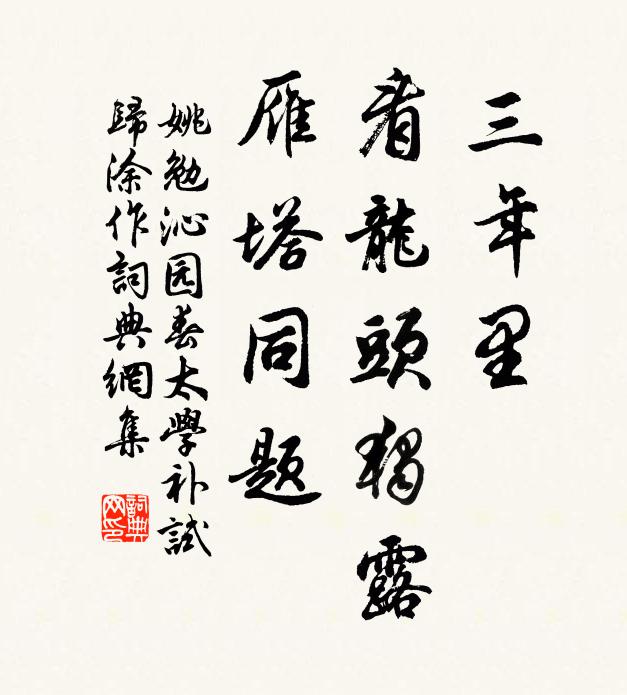 三年里
看龍頭獨露
雁塔同題
姚勉沁园春太學补試
歸涂作詞典網集
詞典
网印